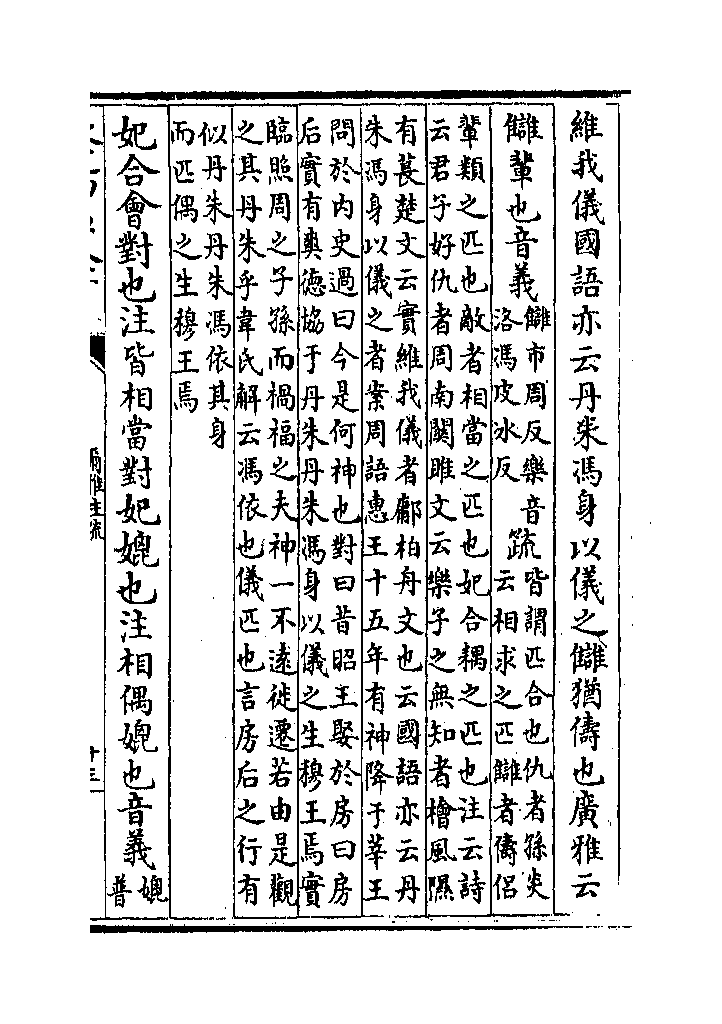 維我儀國語亦云丹朱馮身以儀之讎猶儔也廣雅云
讎輩也音義讎市周反樂音
洛馮皮冰反
疏皆謂匹合也仇者孫炎
云相求之匹讎者儔侶
輩類之匹也敵者相當之匹也妃合耦之匹也注云詩
云君子好仇者周南關雎文云樂子之無知者檜風隰
有萇楚文云實維我儀者鄘柏舟文也云國語亦云丹
朱馮身以儀之者案周語惠王十五年有神降于莘王
問於内史過曰今是何神也對曰昔昭王娶於房曰房
后實有爽德協于丹朱丹朱馮身以儀之生穆王焉實
臨照周之子孫而禍福之夫神一不遠徙遷若由是觀
之其丹朱乎韋氏解云馮依也儀匹也言房后之行有
似丹朱丹朱馮依其身
而匹偶之生穆王焉
妃合會對也注皆相當對妃媲也注相偶媲也音義媲
普
爾雅注疏
十三